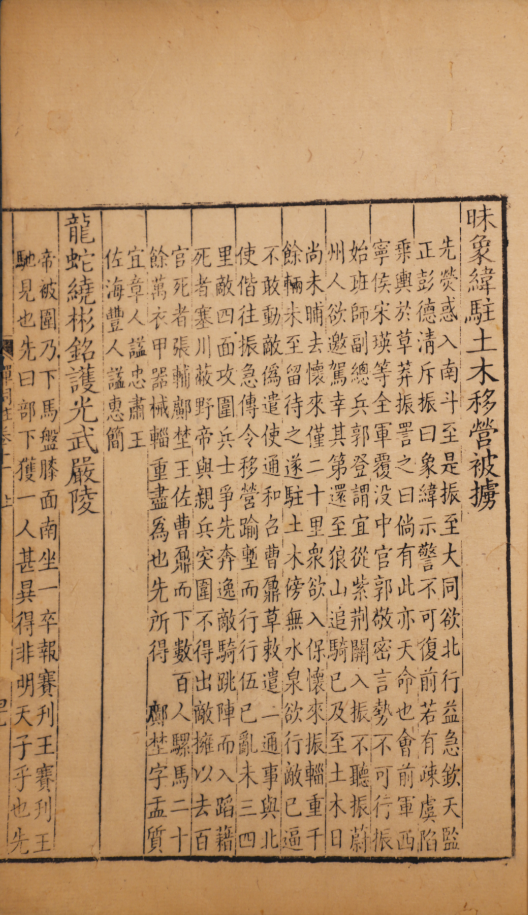 昧象緯駐土木移營被擄
先熒惑入南斗至是振至大同欲北行益急欽天監
正彭德清斥振曰象緯示警不可復前若有疎虞陷
乘輿於草莽振詈之曰倘有此亦天命也會前軍西
寧侯宋瑛等全軍覆没中官郭敬密言勢不可行振
始班師副總兵郭登謂宜從紫荆關入振不聽振蔚
州人欲邀駕幸其第還至狼山追騎已及至土木日
尚未晡去懷來僅二十里衆欲入保懷來振輜重千
餘輛未至留待之遂駐土木傍無水泉欲行敵已逼
不敢動敵僞遣使通和召曹鼐草敕遣二通事與北
使偕往振急傳令移營踰塹而行行伍已亂未三四
里敵四面攻圍兵士爭先奔逸敵騎跳陣而入蹈藉
死者塞川蔽野帝與親兵突圍不得出敵擁以去百
官死者張輔鄺埜王佐曹鼐而下數百人騾馬二十
餘萬衣甲器械輜重盡為也先所得　鄺埜字孟質
宜章人謚忠肅王
佐海豐人謚忠簡
龍蛇繞彬銘護光武嚴陵
帝被圍乃下馬盤膝面南坐一卒報賽刋王賽刋王
馳見也先曰部下獲一人甚異得非明天子乎也先